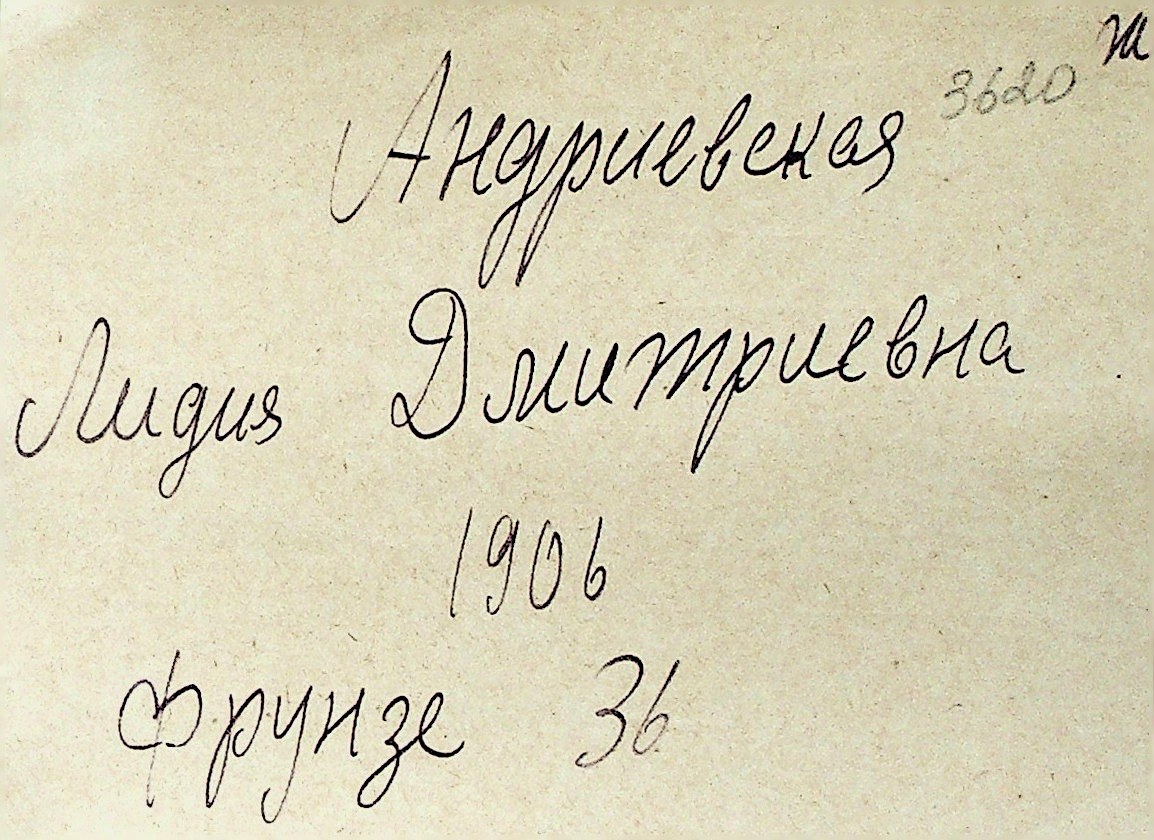 3620
Андриевская
Лидия Дмитриевна
1906
Фрунзе 36